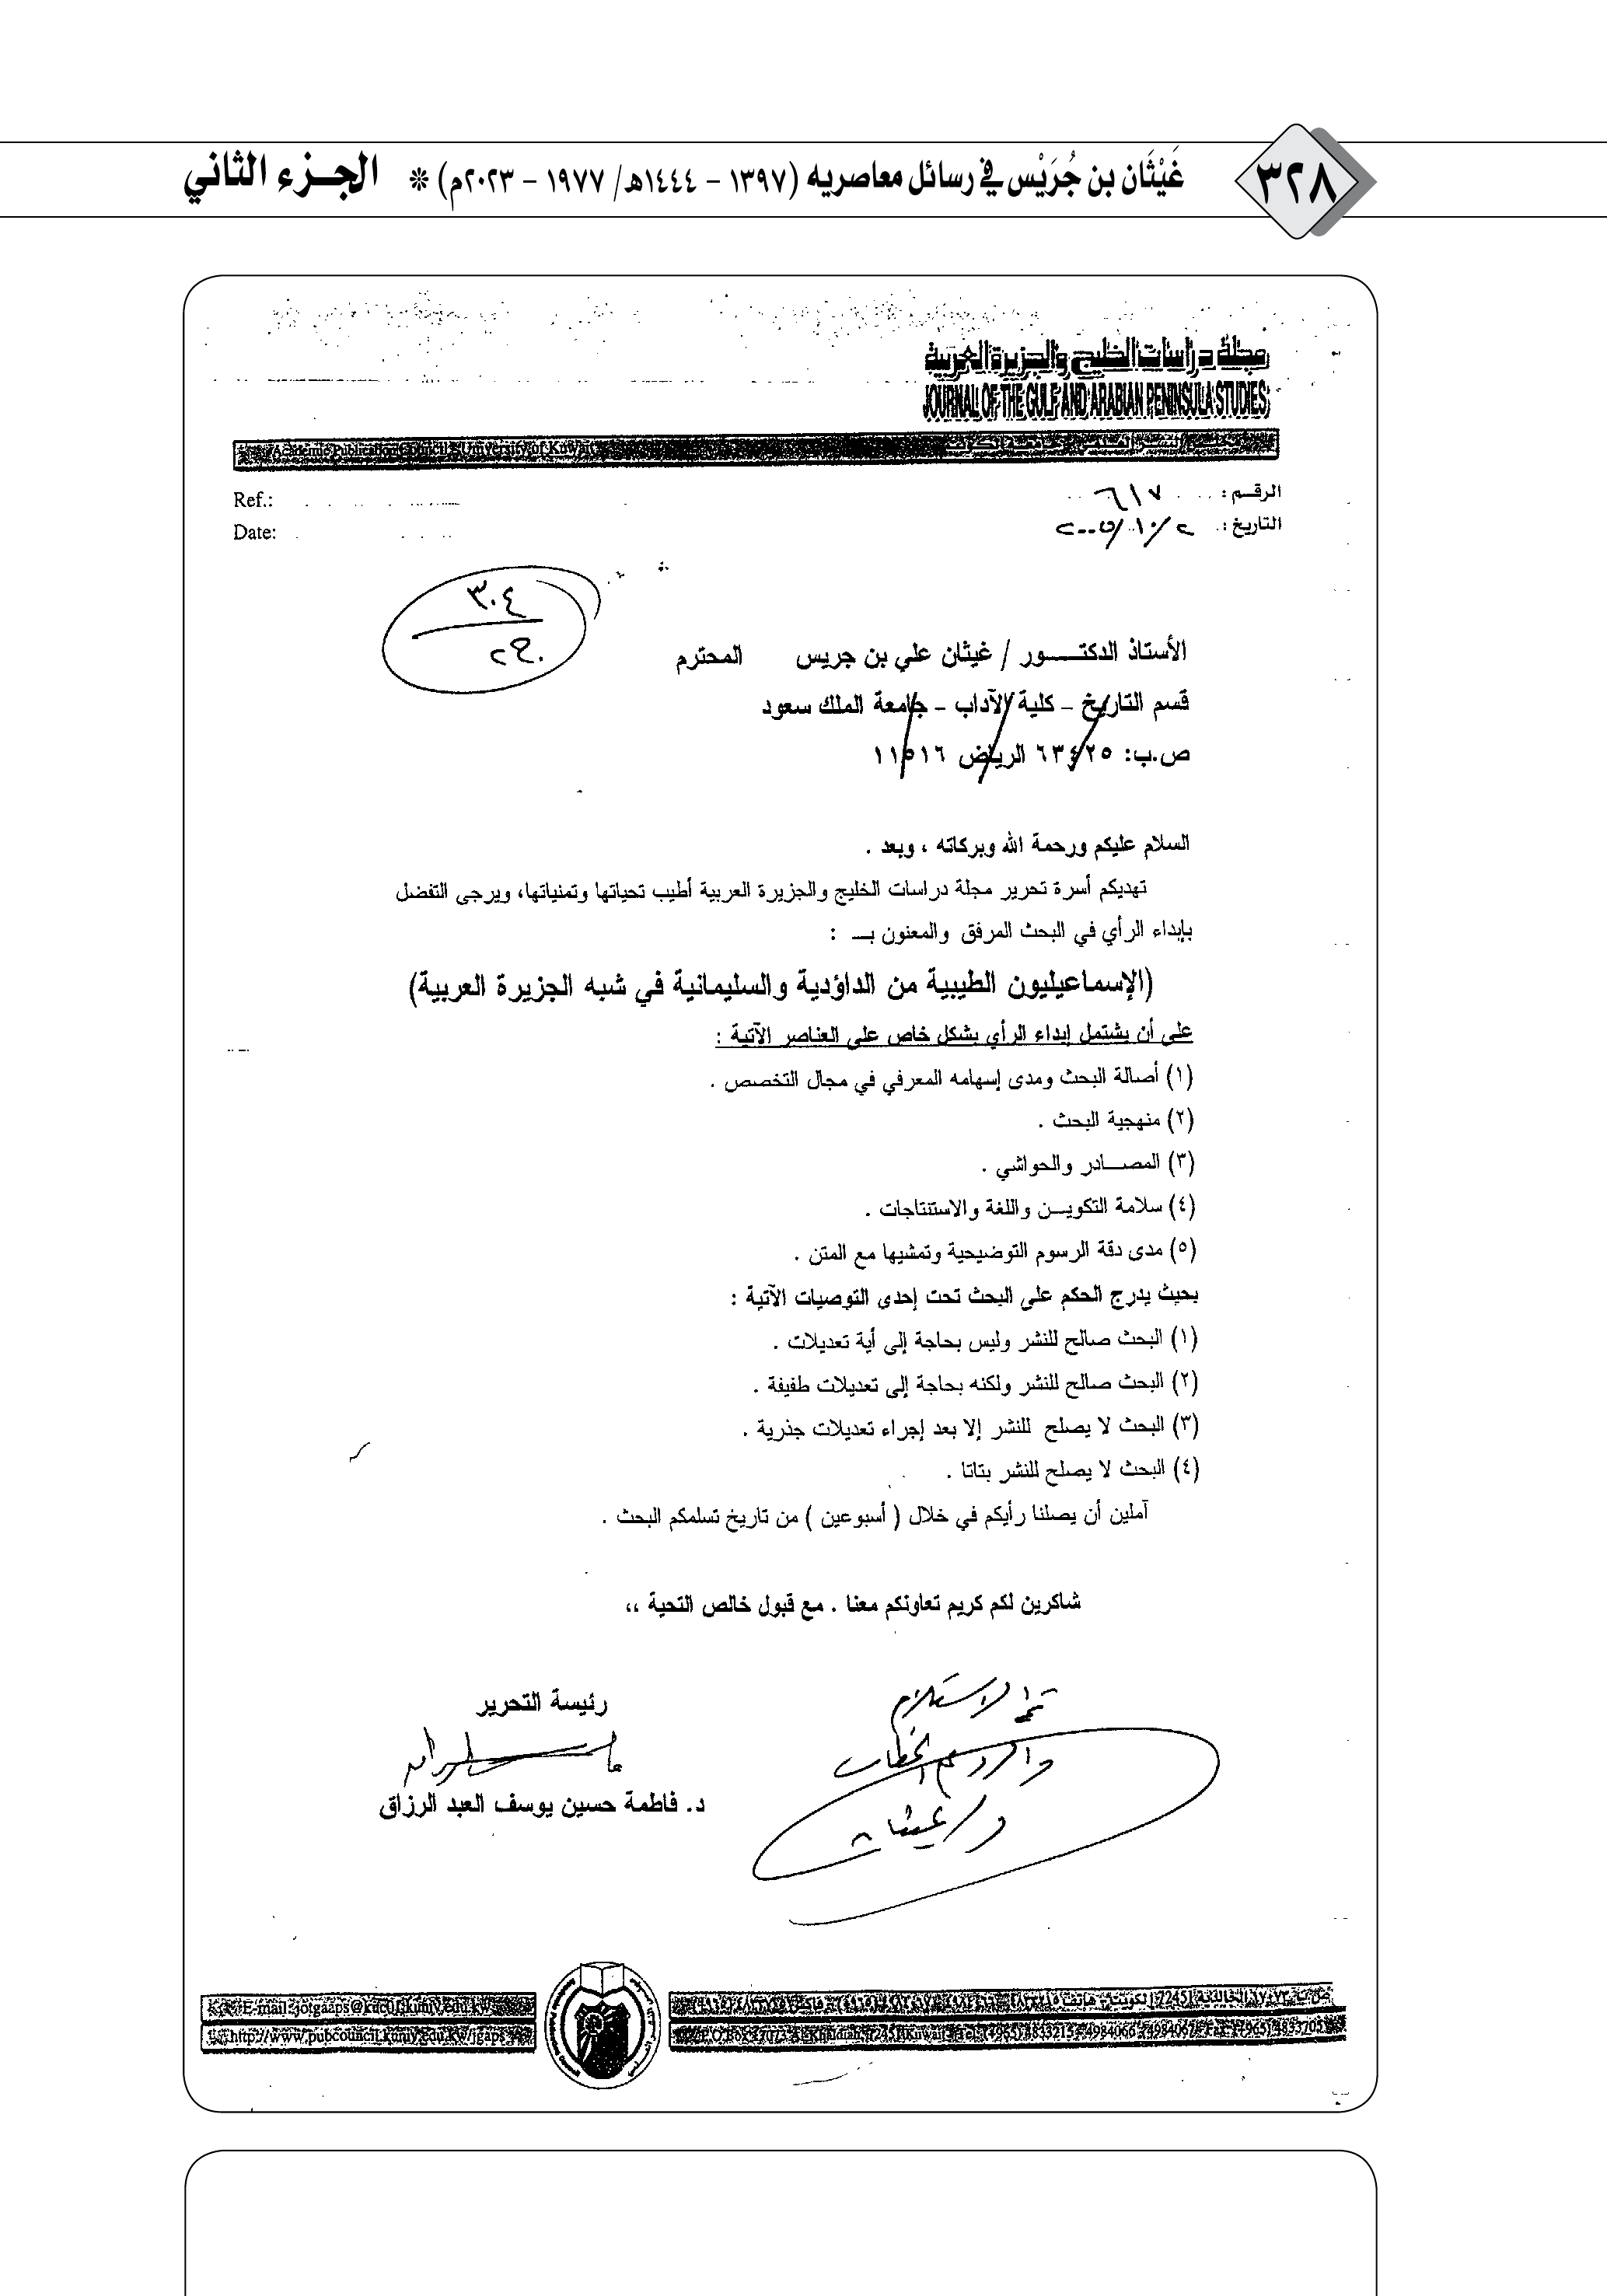 ٣٢٨
غَيْثَان بن جُرَيْس في رسائل معاصريه (١٣٩٧ – ١٤٤٤هـ/ ١٩٧٧ – ٢٠٢٣م) * الجزء الثاني
مجلة دراسات الخليج والجزيرة العربية
JOURNAL OF THE GULF AND ARABIAN PENINSULA STUDIES
Academic Publication Council - University of Kuwait
الرقم : ٦١٧
Ref.:
التاريخ : ٢/١٠/٢٠٠٥
Date:
٣٠٤
الأستاذ الدكتـــور / غيثان علي بن جريس المحترم
قسم التاريخ – كلية الآداب – جامعة الملك سعود
ص.ب: ٦٣٤٢٥ الرياض ١١٥١٦
السلام عليكم ورحمة الله وبركاته ، وبعد .
تهديكم أسرة تحرير مجلة دراسات الخليج والجزيرة العربية أطيب تحياتها وتمنياتها، ويرجى التفضل
بإبداء الرأي في البحث المرفق والمعنون بـــ :
(الإسماعيليون الطيبية من الداؤدية والسليمانية في شبه الجزيرة العربية)
على أن يشتمل إبداء الرأي بشكل خاص على العناصر الآتية :
(١) أصالة البحث ومدى إسهامه المعرفي في مجال التخصص .
(٢) منهجية البحث .
(٣) المصـــادر والحواشي .
(٤) سلامة التكويـــن واللغة والاستنتاجات .
(٥) مدى دقة الرسوم التوضيحية وتمشيها مع المتن .
بحيث يدرج الحكم على البحث تحت إحدى التوصيات الآتية :
(١) البحث صالح للنشر وليس بحاجة إلى أية تعديلات .
(٢) البحث صالح للنشر ولكنه بحاجة إلى تعديلات طفيفة .
(٣) البحث لا يصلح للنشر إلا بعد إجراء تعديلات جذرية .
(٤) البحث لا يصلح للنشر بتاتا .
آملين أن يصلنا رأيكم في خلال ( أسبوعين ) من تاريخ تسلمكم البحث .
شاكرين لكم كريم تعاونكم معنا . مع قبول خالص التحية ،،
رئيسة التحرير
د. فاطمة حسين يوسف العبد الرزاق
تم الاستلام
والرد الخطاب
د/ غيثان
E-mail: jotgaaps@kuc01.kuniv.edu.kw
http://www.pubcouncil.kuniv.edu.kw/jgaps